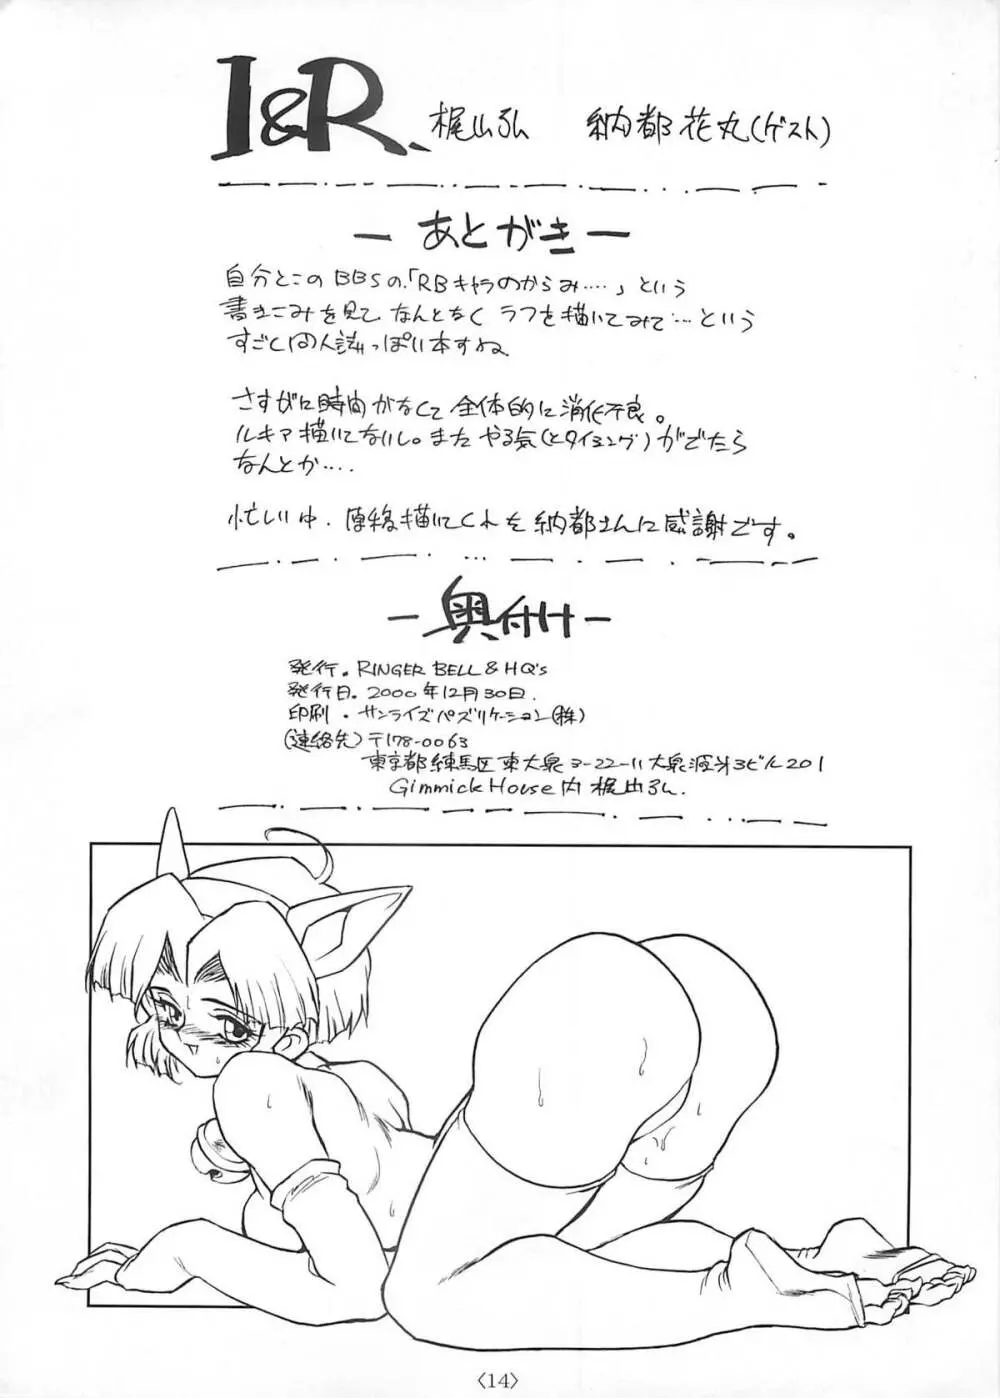 I&R
梶山弘 納都花丸(ゲスト)
ーあとがきー
自分とこのBBSの「RBキャラのからみ‥‥」という
書きこみを見て なんとなく ラフを描いてみて‥‥という
すごく同人誌っぽい本すね
さすがに時間がなくて 全体的に消化不良。
ルキア描いてないし。また やる気(とタイミング)がでたら
なんとか‥‥
忙しい中、原稿描いてくれた納都さんに感謝です。
ー奥付けー
発行。RINGER BELL & HQ's
発行日。2000年12月30日.
印刷・サンライズパブリケーション(株)
(連絡先)〒178-0063
東京都練馬区東大泉3-22-11大泉酒井3ビル201
Gimmick House内 梶山弘.
〈14〉